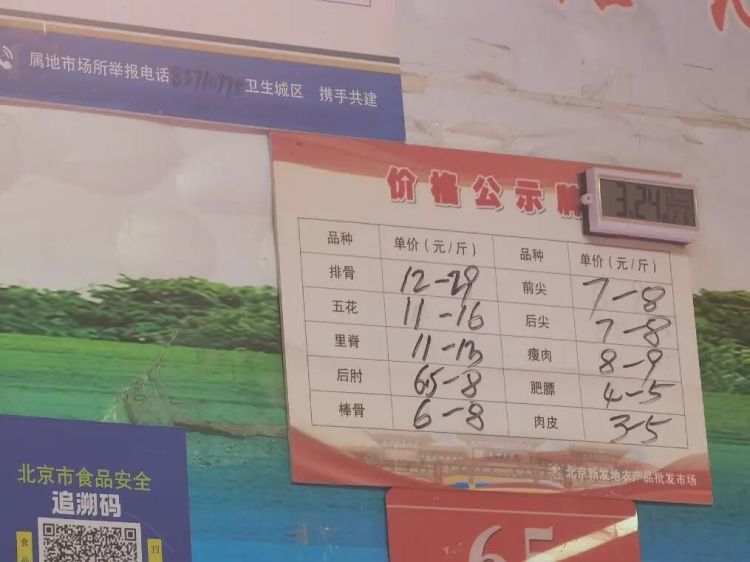 属地市场所举报电话83710795卫生城区 携手共建
价格公示牌
3.24
品种 单价(元/斤) 品种 单价(元/斤)
排骨 12-29 前尖 7-8
五花 11-16 后尖 7-8
里脊 11-13 瘦肉 8-9
后肘 6.5-8 肥膘 4-5
棒骨 6-8 肉皮 3-5
北京新发地农产品批发市场
北京市食品安全
追溯码
食
扫
65